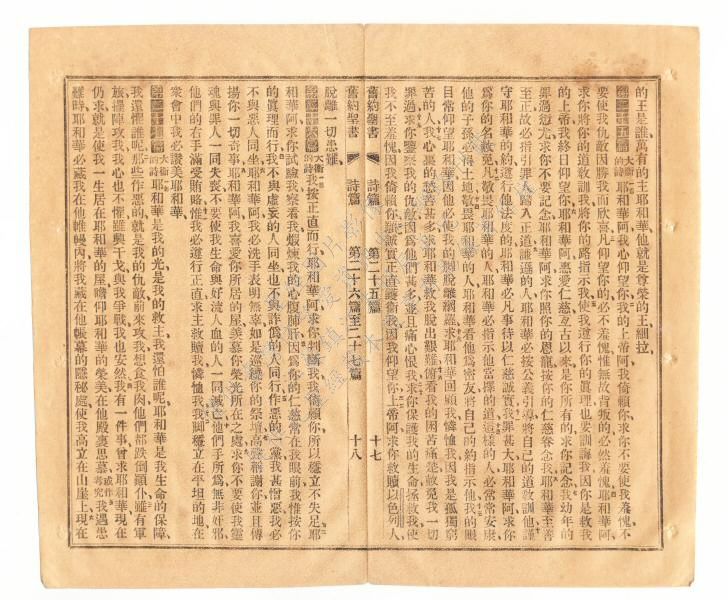 的王是誰萬有的主耶和華他就是尊榮的王細拉
第二十五篇 大衛的詩 耶和華阿我心仰望你我的上帝阿我倚賴你求你不要使我羞愧不
要使我仇敵因勝我而欣喜凡仰望你的必不羞愧惟無故背叛的必然羞愧耶和華阿
求你將你的道敎訓我將你的路指示我使我遵行你的眞理也要訓誨我因你是救我
的上帝我終日仰望你耶和華阿憑愛仁慈亙古以來是你所有的求你記念我幼年的
罪過愆尤求你不要記念耶和華阿求你照你的恩寵按你的仁慈眷念我耶和華至善
至正故必指引罪人歸入正道謙遜的人耶和華必按公義引導將自己的道敎訓他謹
守耶和華的約遵行他法度的耶和華必凡事待以仁慈誠實我罪甚大耶和華阿求你
爲你的名赦免凡敬畏耶和華的人耶和華必指示他當擇的道這樣的人必常常安康
他的子孫必得土地敬畏耶和華的人耶和華看他爲密友將自己的約指示他我的眼
目常仰望耶和華因他必使我的脚脫離網羅求耶和華回顧我憐恤我因我是孤獨窮
苦的人我心裏的愁苦甚多求耶和華救我脫出艱難俯看我的困苦痛楚赦免我一切
罪過求你鑒察我的仇敵因爲他們甚多並且痛心恨我求你保護我的生命拯救我使
我不至羞愧因我倚賴你願誠實正直護衛我因我仰望你上帝阿求你救贖以色列人
舊約聖書 詩篇 第二十五篇 十七
舊約聖書 詩篇 第二十六篇至二十七篇 十八
脫離一切患難
第二十六篇 大衛的詩 我按正直而行耶和華阿求你判斷我我倚賴你所以穩立不失足耶
和華阿求你試驗我察看我煆煉我的心腹肺肝因爲你的仁慈常在我眼前我惟按你
的眞理而行我不與虛妄的人同坐也不與詐僞的人同行作惡的一黨我甚憎惡我必
不與惡人同坐耶和華阿我必洗手表明無辜如是巡繞你的祭壇高聲稱謝你並且傳
揚你一切奇事耶和華阿我喜愛你所居的屋羡慕你榮光所在之處求你不要使我靈
魂與罪人一同失喪不要使我生命與好流人血的人一同滅亡他們手所爲無非奸邪
他們的右手滿受賄賂惟我必遵行正直求主救贖我憐恤我我脚穩立在平坦的地在
衆會中我必讚美耶和華
第二十七篇 大衛的詩 耶和華是我的光是我的救主我還怕誰呢耶和華是我生命的保障
我還懼誰呢那些作惡的就是我的仇敵前來攻我想食我肉他們都跌倒顚仆雖有軍
旅擺陣攻我我心也不懼雖興干戈與我爭戰我也安然我有一件事曾求耶和華現在
仍求就是使我一生居在耶和華的屋瞻仰耶和華的榮美在他殿裏思慕或作考究我遇患
難時耶和華必藏我在他帷幔內將我藏在他帳幕的隱秘處使我高立在山崖上現在